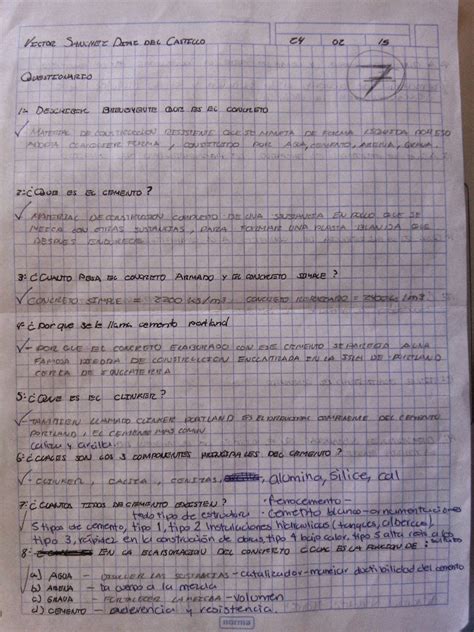 VICTOR SANCHEZ DIAZ DEL CASTILLO 24 02 15
CUESTIONARIO 7
1.- DESCRIBIR BREVEMENTE QUE ES EL CONCRETO
MATERIAL DE CONSTRUCCION RESISTENTE QUE SE MANEJA DE FORMA LIQUIDA POR ESO
ADOPTA CUALQUIER FORMA, CONSTITUIDO POR AGUA, CEMENTO, ARENA, GRAVA.
2: ¿QUE ES EL CEMENTO?
MATERIAL DE CONSTRUCCION COMPUESTO DE UNA SUSTANCIA EN POLVO QUE SE
MEZCLA CON OTRAS SUSTANCIAS, PARA FORMAR UNA PASTA BLANDA QUE
DESPUES ENDURECE.
3: ¿CUANTO PESA EL CONCRETO ARMADO Y EL CONCRETO SIMPLE?
CONCRETO SIMPLE = 2200 KG/m3 CONCRETO = 2400 KG/m3
4.- ¿Por que se le llama cemento portland
- POR QUE EL CONCRETO ELABORADO CON ESE CEMENTO A LA
FAMOSA PIEDRA DE CONSTRUCCION ENCONTRADA EN LA ISLA DE PORTLAND
CERCA DE INGLATERRA
5: ¿QUE ES EL CLINKER?
- TAMBIEN LLAMADO CLINKER PORTLAND ES EL PRINCIPAL COMPONENTE DEL CEMENTO
PORTLAND, EL CEMENTO MAS COMUN.
caliza y arcilla
6: ¿CUALES SON LOS 3 COMPONENTES PRINCIPALES DEL CEMENTO?
- CLINKER, CALIZA, alumina, Silice, cal
7: ¿CUANTOS TIPOS DE CEMENTO EXISTEN? · Ferrocemento-
todo tipo de estructura · Cemento blanco-
5 tipos de cemento, tipo 1, tipo 2 Instalaciones hidraulicas (tanques, albercas)
tipo 3, rapidez en la construcción de obras, tipo 4 bajo calor, tipo 5 alta
8- EN LA ELABORACION DEL CONCRETO CUAL ES LA FUNCION DE:
a) AGUA - LAS SUSTANCIAS - catalizador - manejar ductibilidad del cemento
b) ARENA - da cuerpo a la mezcla
c) GRAVA - FORTALECER LA MEZCLA - Volumen
d) CEMENTO - adherencia y resistencia.
norma